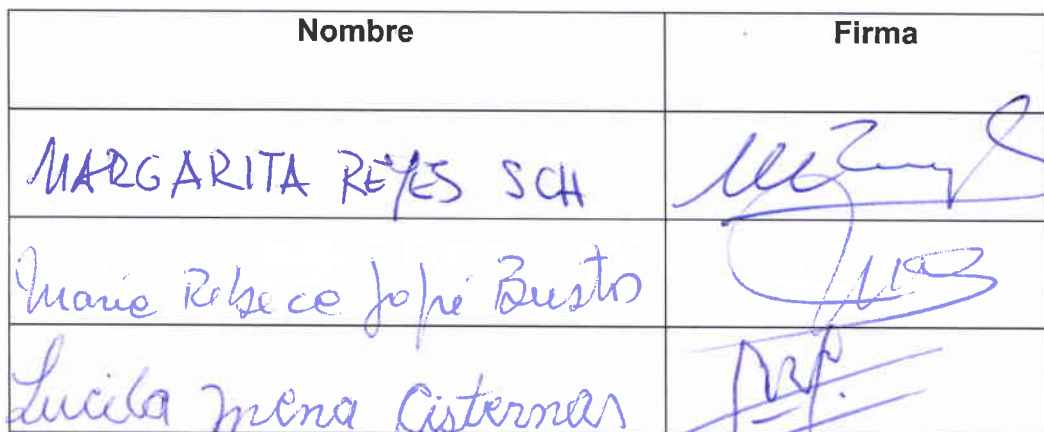 Nombre Firma
MARGARITA REYES SCH
Maria Rebeca Jofré Bustos
Lucila Mena Cisternas